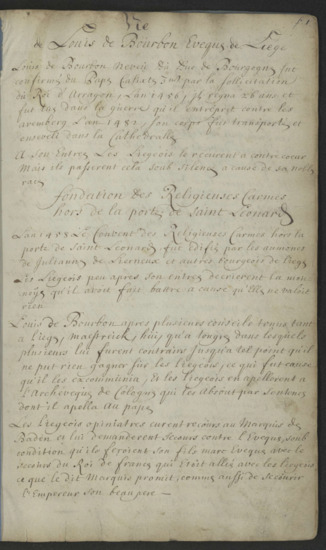 Vie
de Louis de Bourbon Evecque de Liege
Louis de Bourbon Neveu du Duc de Bourgogne fut
confirmé du Pape Calixte 3me par la sollicitation
du Roi d'Arragon l'an 1456, il regna ans et
fut tué dans la guerre qu'il entreprit contre les
aremberg l'an 1482, son corps fut transporté et
enseveli dans la Cathedralle
A son Entrée Les Liegeois le receurent a contre coeur
Mais ils passerent cela sous silence a cause de sa noble
race
fondation des Religieuses Carmes
hors de la porte de Saint Leonard
L'an Le Couvent des Religieuses Carmes hors la
porte de saint Leonard fut édifié par les aumones
de Julienne de et autres bourgeois de Liege
Les Liegeois peu apres son entrée decrierent la mon
noye qu'il avoit fait battre a cause qu'elle ne valoit
rien
Louis de Bourbon apres plusieurs conseils tenus tant
a Liege, Maestreich, huy, qu'a tongre dans lesquels
plusieurs lui furent contraires jusqu'a tel point qu'il
ne put rien gagner sur les Liegeois, ce qui fut cause
qu'il les excommunia, et les Liegeois en apellerent a
l'Archevecque de Cologne qui les absout par sentence
dont il apella au pape
Les Liegeois opiniatres eurent recours au Marquis de
Baden et lui demanderent secours contre l'Evecque, sous
condition qu'ils feroient son fils marc Evecque avec le
secours du Roi de france qui etoit allié avec les Liegeois
ce que le dit Marquis promit, comme aussi de secourir
l'Empereur son beau pere —